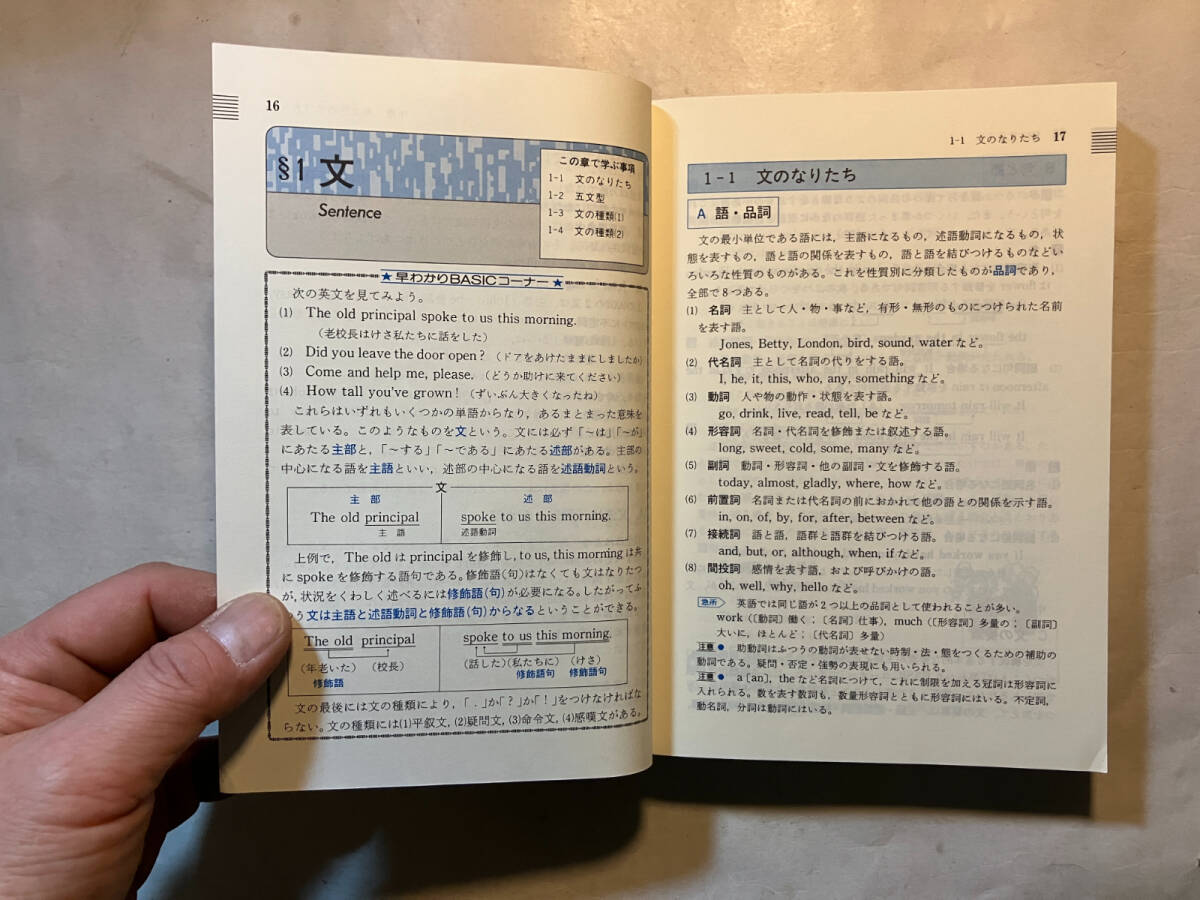 16
§1 文
Sentence
この章で学ぶ事項
1-1 文のなりたち
1-2 五文型
1-3 文の種類(1)
1-4 文の種類(2)
★早わかりBASICコーナー★
次の英文を見てみよう。
(1) The old principal spoke to us this morning.
(老校長はけさ私たちに話をした)
(2) Did you leave the door open? (ドアをあけたままにしましたか)
(3) Come and help me, please. (どうか助けに来てください)
(4) How tall you've grown! (ずいぶん大きくなったね)
これらはいずれもいくつかの単語からなり，あるまとまった意味を
表している。このようなものを文という。文には必ず「〜は」「〜が」
にあたる主部と，「〜する」「〜である」にあたる述部がある。主部の
中心になる語を主語といい，述部の中心になる語を述語動詞という。
文
主部 述部
The old principal spoke to us this morning.
主語 述語動詞
上例で，The old は principal を修飾し，to us, this morning は共
に spoke を修飾する語句である。修飾語(句)はなくても文はなりたつ
が，状況をくわしく述べるには修飾語(句)が必要になる。したがってふ
う文は主語と述語動詞と修飾語(句)からなるということができる。
The old principal spoke to us this morning.
(年老いた) (校長) (話した)(私たちに) (けさ)
修飾語 修飾語句 修飾語句
文の最後には文の種類により，「．」か「？」か「！」をつけなければな
らない。文の種類には(1)平叙文，(2)疑問文，(3)命令文，(4)感嘆文がある。
1-1 文のなりたち 17
1-1 文のなりたち
A 語・品詞
文の最小単位である語には，主語になるもの，述語動詞になるもの，状
態を表すもの，語と語の関係を表すもの，語と語を結びつけるものなどい
ろいろな性質のものがある。これを性質別に分類したものが品詞であり，
全部で8つある。
(1) 名詞 主として人・物・事など，有形・無形のものにつけられた名前
を表す語。
Jones, Betty, London, bird, sound, water など。
(2) 代名詞 主として名詞の代りをする語。
I, he, it, this, who, any, something など。
(3) 動詞 人や物の動作・状態を表す語。
go, drink, live, read, tell, be など。
(4) 形容詞 名詞・代名詞を修飾または叙述する語。
long, sweet, cold, some, many など。
(5) 副詞 動詞・形容詞・他の副詞・文を修飾する語。
today, almost, gladly, where, how など。
(6) 前置詞 名詞または代名詞の前におかれて他の語との関係を示す語。
in, on, of, by, for, after, between など。
(7) 接続詞 語と語，語群と語群を結びつける語。
and, but, or, although, when, if など。
(8) 間投詞 感情を表す語，および呼びかけの語。
oh, well, why, hello など。
急所 英語では同じ語が2つ以上の品詞として使われることが多い。
work(〔動詞〕働く；〔名詞〕仕事)，much(〔形容詞〕多量の；〔副詞〕
大いに，ほとんど；〔代名詞〕多量)
注意● 助動詞はふつうの動詞が表せない時制・法・態をつくるための補助の
動詞である。疑問・否定・強勢の表現にも用いられる。
注意● a [an], the など名詞につけて，これに制限を加える冠詞は形容詞に
入れられる。数を表す数詞も，数量形容詞とともに形容詞にはいる。不定詞，
動名詞，分詞は動詞にはいる。